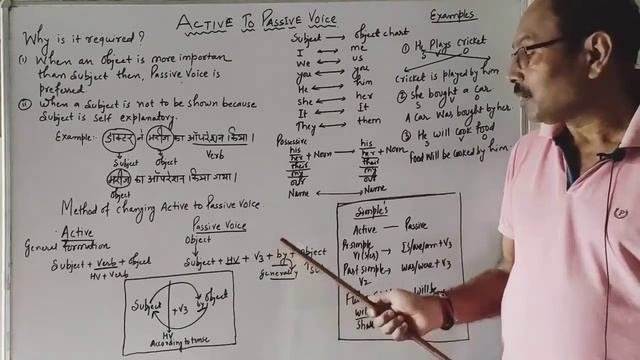 ACTIVE TO PASSIVE VOICE
Why is it required?
(i) When an object is more importan
than Subject then, Passive Voice is
preferred.
(ii) When a Subject is not to be shown because
Subject is self explanatory.
Example:- डाक्टर ने मरीज का ऑपरेशन किया।
Subject Object Verb
मरीज का ऑपरेशन किया गया।
Object
Method of changing Active to Passive Voice.
Active
General formation
Subject + Verb + object
HV + Verb
Passive Voice
Object
Subject + HV + V3 + by + object
generally
Subject + V3 by Object
HV
According to tense
Subject → object chart
I ↔ me
We ↔ us
you ↔ you
He ↔ him
she ↔ her
It ↔ It
They ↔ them
Possessive
his his
her + Noun → her + Noun
their their
my my
our our
Name ↔ Name
Simple's
Active — Passive
Pr. simple → Is/are/am + V3
V1 (s/es)
Past simple → was/were + V3
V2
will be
Shall
Examples
① He Plays Cricket
S V O
Cricket is played by him
② She bought a Car
S V O
A Car was bought by her
③ He will Cook food
S V O
Food will be cooked by him